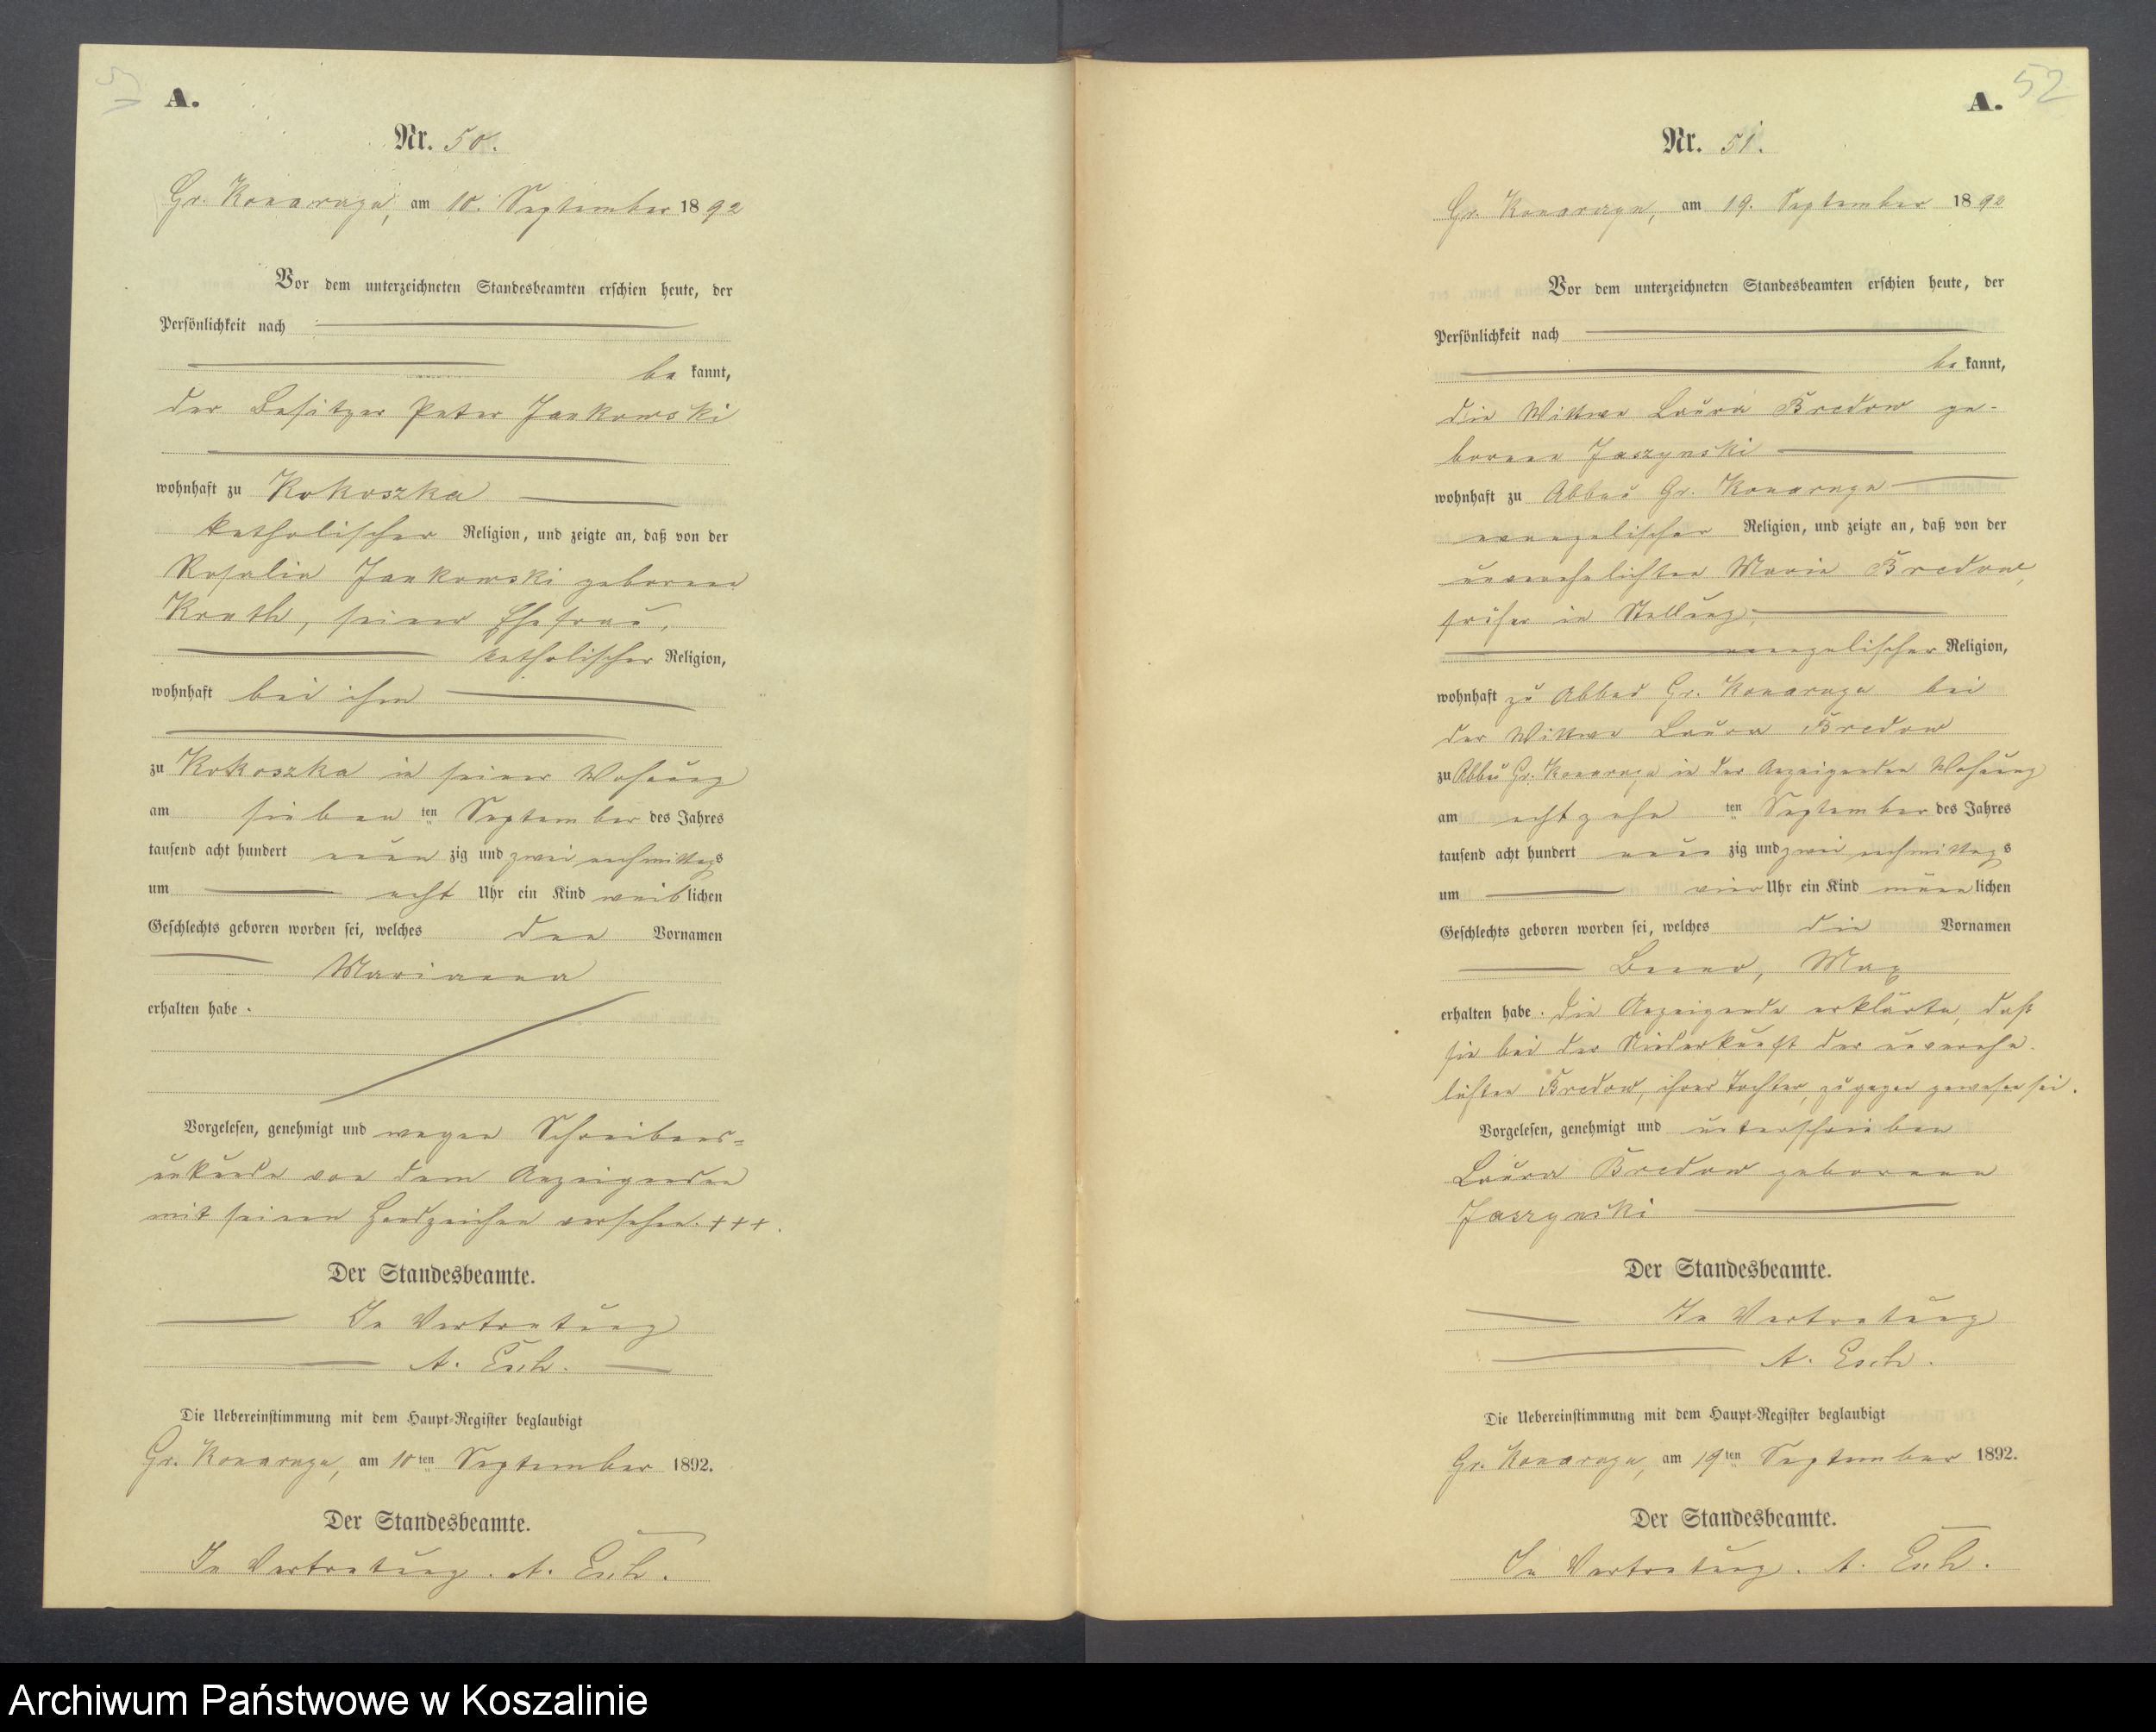 A.
Nr. 50.
Gr. Konarzyn, am 10. September 1892
Vor dem unterzeichneten Standesbeamten erschien heute, der
Persönlichkeit nach
be kannt,
der Besitzer Peter Jankowski
wohnhaft zu Kokoszka
katholischer Religion, und zeigte an, daß von der
Rosalie Jankowski geborene
Knuth, seiner Ehefrau,
katholischer Religion,
wohnhaft bei ihm
zu Kokoszka in seiner Wohnung
am sieben ten September des Jahres
tausend acht hundert neun zig und zwei nachmittags
um acht Uhr ein Kind weiblichen
Geschlechts geboren worden sei, welches den Vornamen
Marianna
erhalten habe.
Vorgelesen, genehmigt und wegen Schreibens-
unkunde von dem Anzeigenden
mit seinem Handzeichen versehen. +++.
Der Standesbeamte.
In Vertretung
A. Esch.
Die Uebereinstimmung mit dem Haupt-Register beglaubigt
Gr. Konarzyn, am 10ten September 1892.
Der Standesbeamte.
In Vertretung. A. Esch.
A. 52
Nr. 51.
Gr. Konarzyn, am 19. September 1892
Vor dem unterzeichneten Standesbeamten erschien heute, der
Persönlichkeit nach
be kannt,
die Wittwe Laura Bredow ge-
borene Jaszynski
wohnhaft zu Abbau Gr. Konarzyn
evangelischer Religion, und zeigte an, daß von der
unverehelichten Marie Bredow,
früher in Stellung,
evangelischer Religion,
wohnhaft zu Abbau Gr. Konarzyn bei
der Wittwe Laura Bredow
zu Abbau Gr. Konarzyn in der Anzeigenden Wohnung
am achtzehn ten September des Jahres
tausend acht hundert neun zig und zwei nachmittags
um vier Uhr ein Kind männlichen
Geschlechts geboren worden sei, welches die Vornamen
Benno, Max
erhalten habe. Die Anzeigende erklärte, daß
sie bei der Niederkunft der unverehe-
lichten Bredow, ihrer Tochter, zugegen gewesen sei.
Vorgelesen, genehmigt und unterschrieben
Laura Bredow geborene
Jaszynski
Der Standesbeamte.
In Vertretung
A. Esch.
Die Uebereinstimmung mit dem Haupt-Register beglaubigt
Gr. Konarzyn, am 19ten September 1892.
Der Standesbeamte.
In Vertretung. A. Esch.
Archiwum Państwowe w Koszalinie